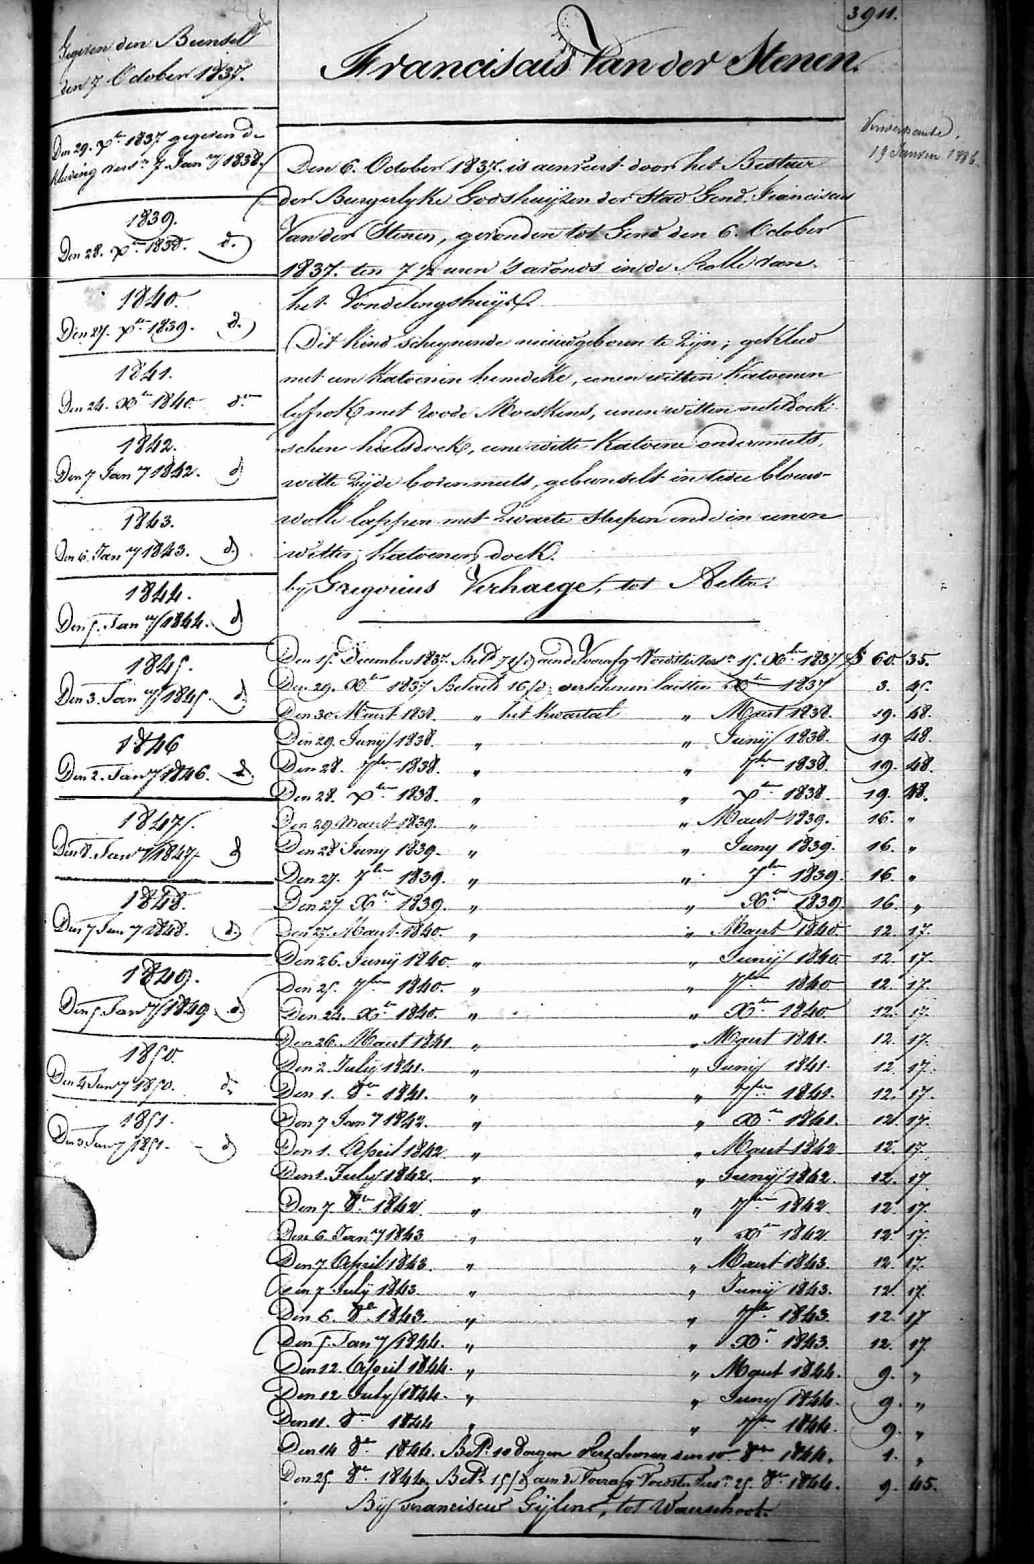 3911.
Franciscus Van der Stenen.
Gegeven den Bunsel
den 7 October 1837.
Den 29. Xber 1837 gegeven de
kleding 7 Jany 1838.
1839.
Den 28. Xber 1838. d.)
1840.
Den 27. Xber 1839. d.)
1841.
Den 24. Xber 1840 do
1842.
Den 7 Jany 1842. d)
1843.
Den 6. Jany 1843. d)
1844.
Den 5. Jany 1844. d)
1845.
Den 3. Jany 1845. d.
1846
Den 2. Jany 1846. d.
1847.
Den 8. Jany 1847. d)
1848.
Den 7 Jany 1848. d.)
1849.
Den 5. Jany 1849. d.)
1850.
Den 4 Jany 1850. d.
1851.
Den 3 Jany 1851. - d)
19 1886.
Den 6. October 1837. is aenveert door het Bestuer
der Burgerlyke Godshuyzen der Stad Gend, Franciscus
Van der Stenen, gevonden tot Gend den 6. October
1837. ten 7 ½ uren 's avonds in de Rolle van
het Vondelingshuys.
Dit kind schynende nieuwgeboren te zyn, gekleed
met een katoenen hemdeke, eenen witten katoenen
lyfrok met roode Moeskens, eenen witten neteldoek-
schen halsdoek, eene witte katoene ondermuts,
witte zyde bovenmuts, gebunselt in twee blouw-
wolle lappen met zwarte strepen ende in eenen
witten katoenen doek.
by Gregorius Verhaege, tot Aelter.
Den 15. December 1837. Betd aen de Voorafg Voedster 15. Xber 1837 60. 35.
Den 29. Xber 1837 Betaelt verschenen laetsten Xber 1837 3. 45.
Den 30. Maert 1838. „ het kwartael „ Maert 1838. 19. 48.
Den 29. Junij 1838. „ „ Junij 1838. 19 48.
Den 28. 7ber 1838. „ „ 7ber 1838. 19. 48.
Den 28. Xber 1838. „ „ Xber 1838. 19. 48.
Den 29 Maert 1839. „ „ Maert 1839. 16. „
Den 28 Juny 1839. „ „ Juny 1839. 16. „
Den 27. 7ber 1839. „ „ 7ber 1839. 16 „
Den 27 Xber 1839. „ „ Xber 1839. 16. „
Den 27. Maert 1840. „ „ Maert 1840. 12. 17.
Den 26. Junij 1840. „ „ Junij 1840 12. 17.
Den 25. 7ber 1840 „ „ 7ber 1840 12. 17.
Den 24. Xber 1840. „ „ Xber 1840 12. 17.
Den 26. Maert 1841. „ „ Maert 1841. 12 17.
Den 2. Julij 1841. „ „ Junij 1841. 12. 17.
Den 1. 8ber 1841. „ „ 7ber 1841. 12. 17.
Den 7 Jany 1842. „ „ Xber 1841. 12. 17.
Den 1. April 1842 „ „ Maert 1842 12. 17.
Den 1. July 1842. „ „ Junij 1842. 12. 17.
Den 7. 8ber 1842. „ „ 7ber 1842 12. 17.
Den 6. Jany 1843 „ „ Xber 1842 12. 17.
Den 7. April 1843. „ „ Maert 1843. 12. 17.
Den 7 Julij 1843. „ „ Junij 1843. 12. 17.
Den 6. 8ber 1843. „ „ 7ber 1843. 12. 17
Den 5. Jany 1844. „ „ Xber 1843. 12. 17.
Den 12. April 1844. „ „ Maert 1844. 9. „
Den 12 July 1844. „ „ Juny 1844. 9. „
Den 11. 8ber 1844 „ „ 7ber 1844. 9. „
Den 14 8ber 1844. Betd 10 dagen verschenen den 10 8ber 1844. 1. „
Den 25. 8ber 1844. Betd aen de Voorafg Voedster 25. 8ber 1844. 9. 45.
Bij Franciscus Gijlens, tot Waerschoot.